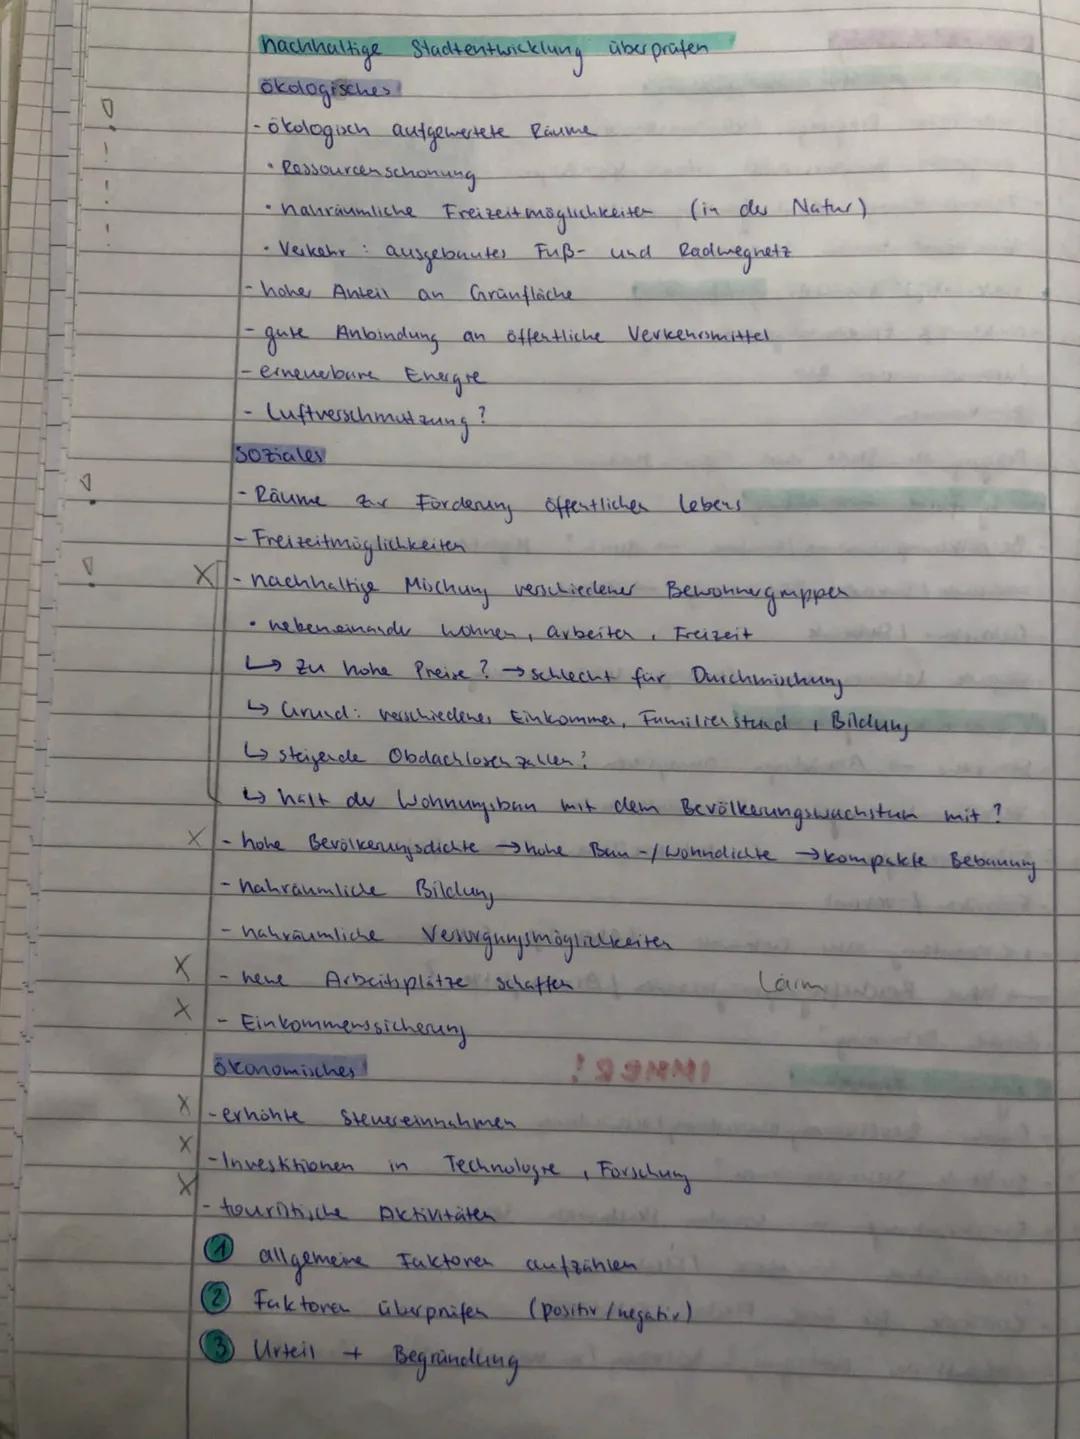 nachhaltige Stadtentwicklung überprüfen
ökologisches
- ökologisch aufgewertete Räume
• Ressourcenschonung
• nahräumliche Freizeitmöglichkeiten (in der Natur)
• Verkehr: ausgebautes Fuß- und Radwegnetz
- hoher Anteil an Grünfläche
- gute Anbindung an öffentliche Verkehrsmittel
- erneuerbare Energie
- Luftverschmutzung?
Soziales
- Räume zur Förderung öffentlichen Lebens
- Freizeitmöglichkeiten
X - nachhaltige Mischung verschiedener Bewohnergruppen
• nebeneinander wohnen, arbeiten, Freizeit
↳ zu hohe Preise? → schlecht für Durchmischung
↳ Grund: verschiedenes Einkommen, Familienstand, Bildung
↳ steigende Obdachlosenzahlen?
↳ hält der Wohnungsbau mit dem Bevölkerungswachstum mit?
X - hohe Bevölkerungsdichte → hohe Bau-/Wohndichte → kompakte Bebauung
- nahräumliche Bildung
- nahräumliche Versorgungsmöglichkeiten
X - neue Arbeitsplätze schaffen Lärm
X - Einkommenssicherung
ökonomisches
X - erhöhte Steuereinnahmen
X - Investitionen in Technologie, Forschung
X - touristische Aktivitäten
1 allgemeine Faktoren aufzählen
2 Faktoren überprüfen (positiv/negativ)
3 Urteil + Begründung